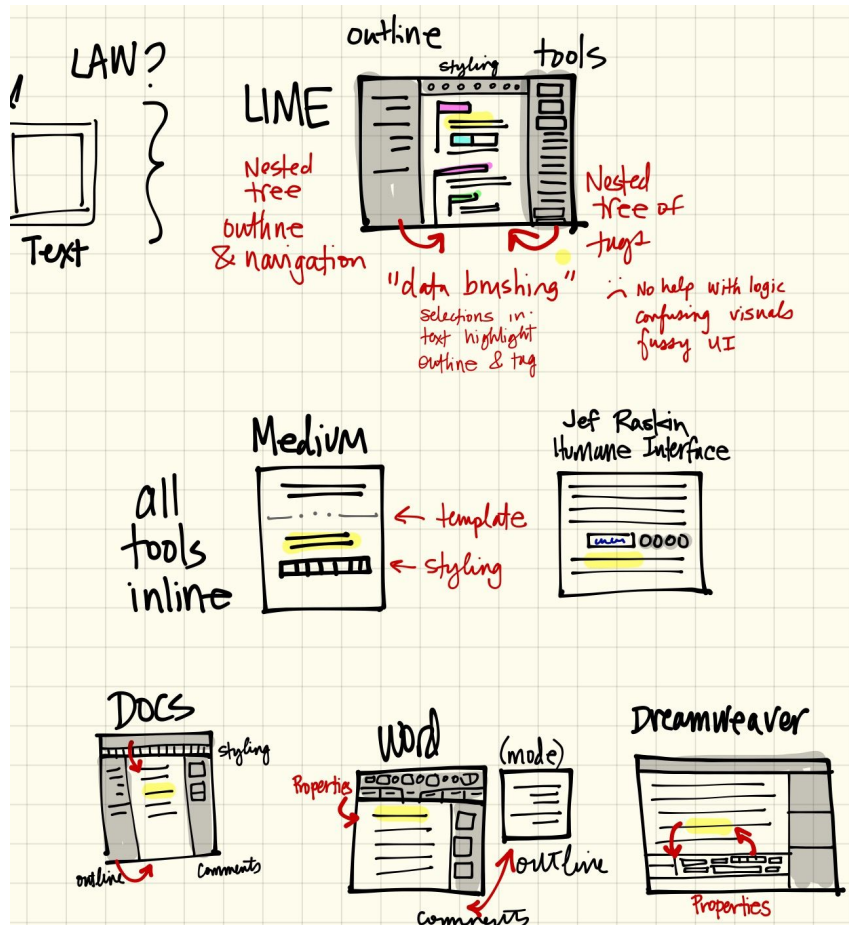 LAW?
Text
LIME
outline
styling
tools
Nested
tree
outline
& navigation
Nested
tree of
tags
"data brushing"
selections in
text highlight
outline & tag
:( No help with logic
confusing visuals
fussy UI
all
tools
inline
Medium
template
styling
Jef Raskin
Humane Interface
menu
Docs
styling
outline
Comments
Word
(mode)
Properties
outline
comments
Dreamweaver
Properties